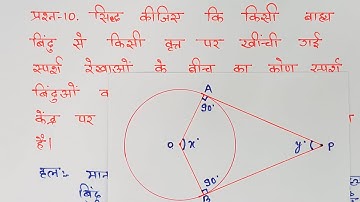 प्रश्न-10. सिद्ध कीजिए कि किसी बाह्य
बिंदु से किसी वृत्त पर खींची गई
स्पर्श रेखाओं के बीच का कोण स्पर्श
बिंदुओं
केंद्र पर
है।
हल:- मान
बिंदु
A
90°
O x° y° P
90°
B